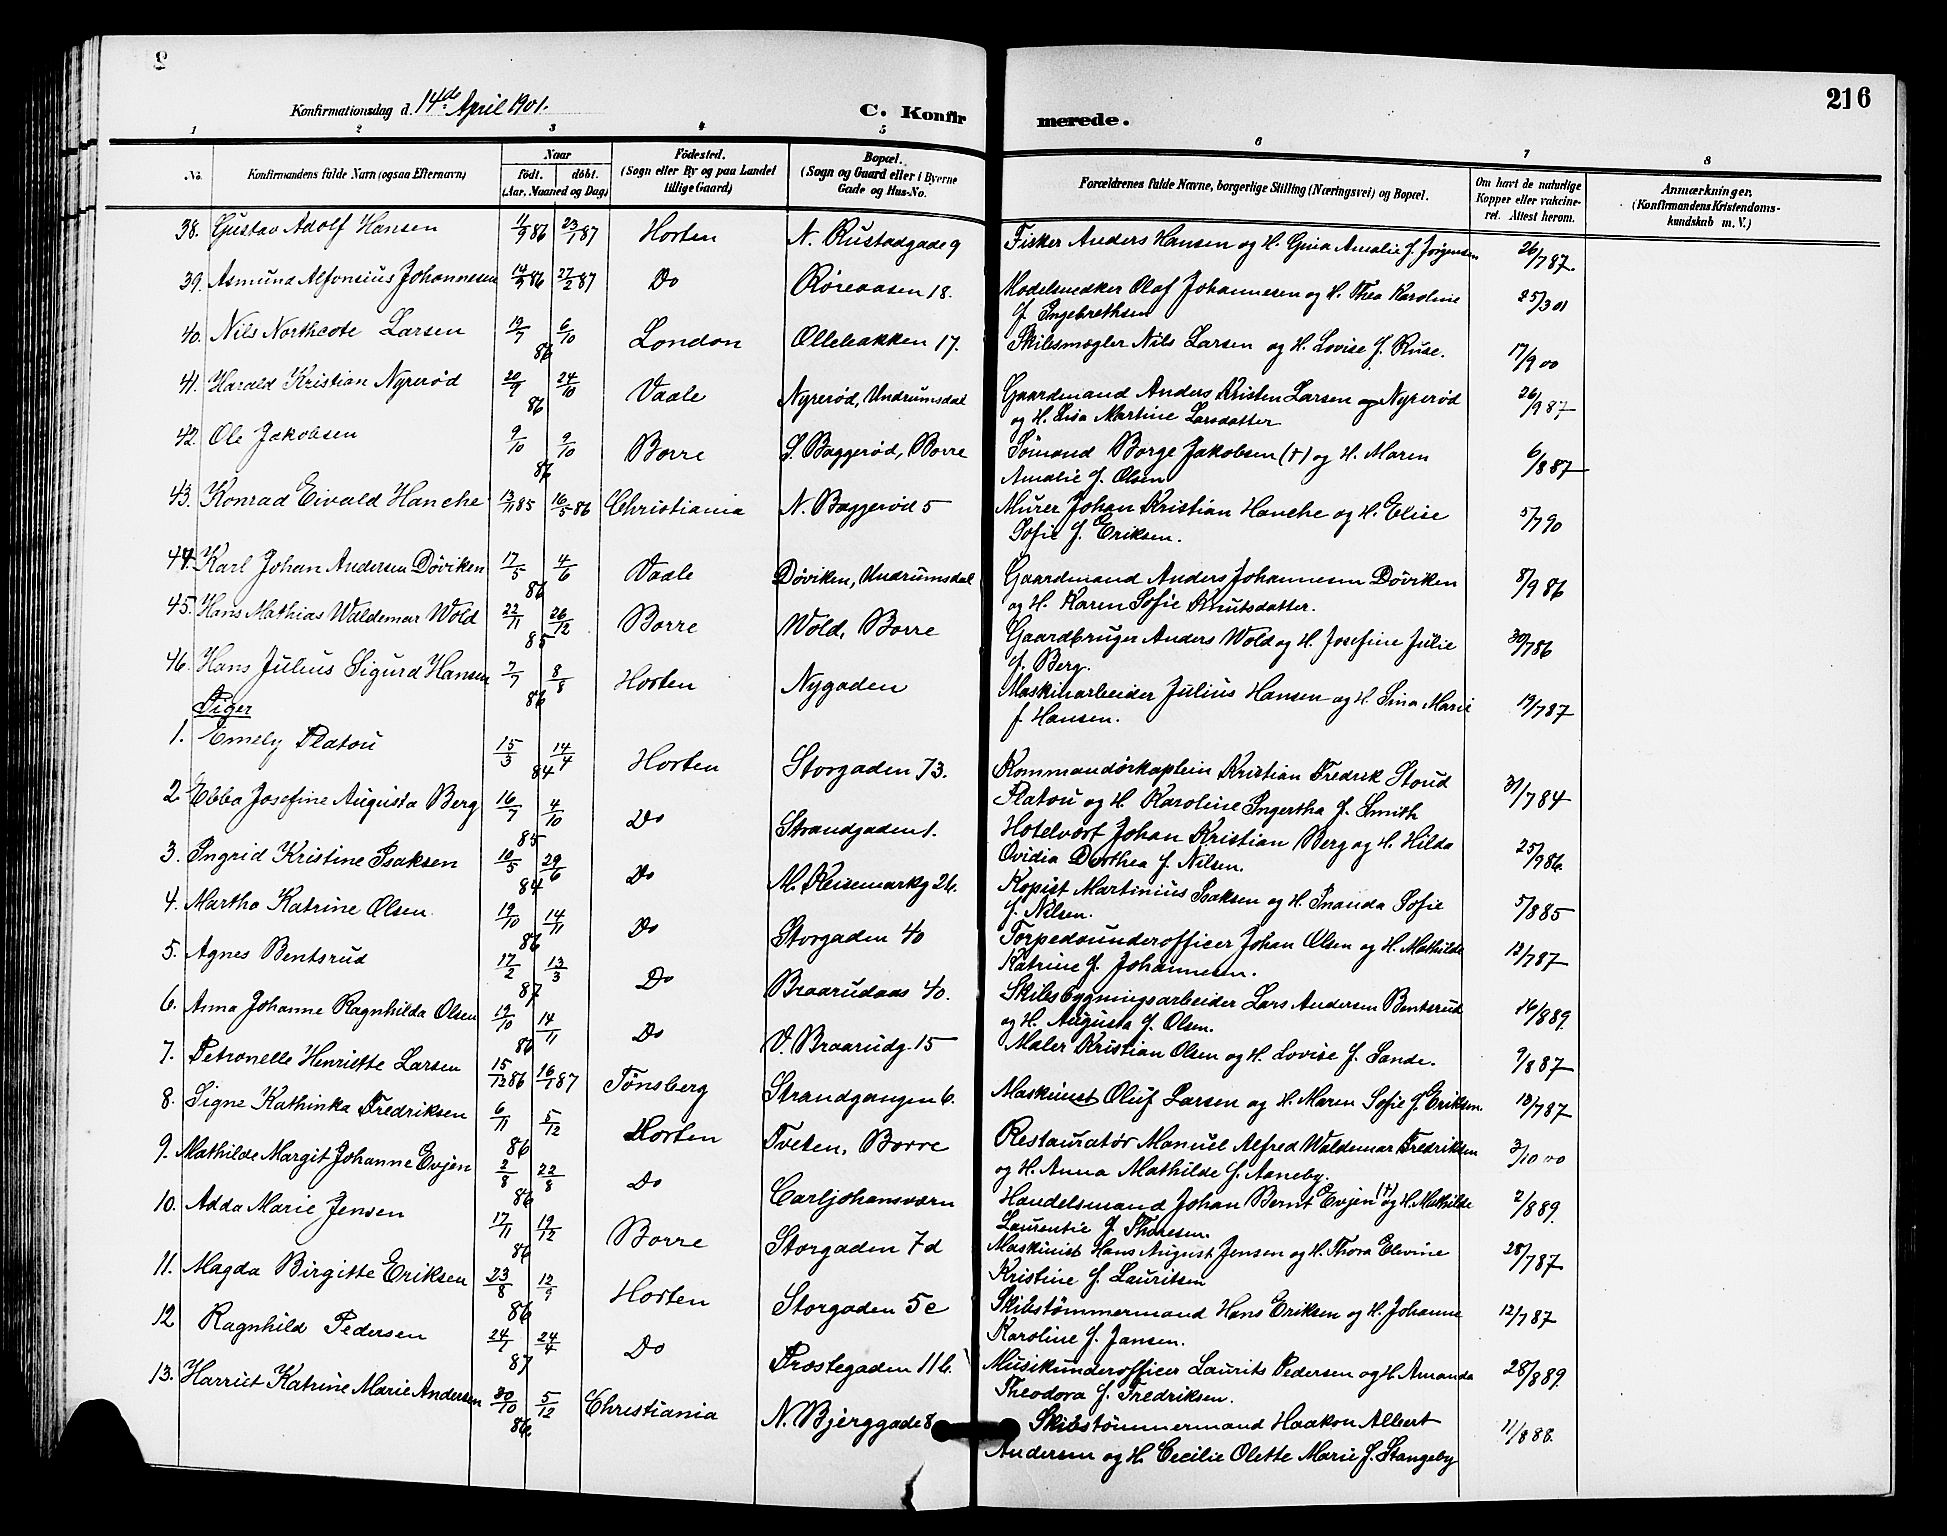 216
Konfirmationsdag d. 14de April 1901.
C. Konfirmerede.
1 2 3 4 5 6 7 8
No. Konfirmandens fulde Navn (ogsaa Efternavn) Naar født. døbt. (Aar, Maaned og Dag) Fødested. (Sogn eller By og paa Landet tillige Gaard) Bopæl. (Sogn og Gaard eller i Byerne Gade og Hus-No. Forældrenes fulde Navne, borgerlige Stilling (Næringsvei) og Bopæl. Om havt de naturlige Kopper eller vaccineret. Attest herom. Anmærkninger. (Konfirmandens Kristendomskundskab m. V.)
38. Gustav Adolf Hansen 1/9 86 23/1 87 Horten N. Rustadgade 9 Fisker Anders Hansen og H. Gina Amalie f. Jørgensen 26/7 87.
39. Asmund Alfonsius Johannesen 14/9 86 27/2 87 Do Røreaasen 18. Modelsnedker Olaf Johannesen og H. Thea Karoline
f. Ingebrethsen 25/3 01
40. Nils Northcote Larsen 19/7 6/10 86 London Ollebakken 17. Skibsmægler Nils Larsen og H. Lovise f. Ruse. 17/9 00
41. Harald Kristian Nyrerød 20/9 24/10 86 Vaale Nyrerød, Undrumsdal Gaardmand Anders Kristen Larsen Nyrerød
og H. Lisa Martine Larsdatter 26/9 87
42. Ole Jakobsen 9/10 9/10 86 Borre S. Baggerød, Borre Sømand Borge Jakobsen (†) og H. Maren
Amalie f. Olsen 6/8 87
43. Konrad Eivald Hanche 13/11 85 16/5 86 Christiania N. Baggerød 5 Murer Johan Kristian Hanche og H. Elise
Sofie f. Eriksen. 5/7 90
44. Karl Johan Andersen Døviken 17/5 4/6 86 Vaale Døviken, Undrumsdal Gaardmand Anders Johannesen Døviken
og H. Karen Sofie Knutsdatter. 8/9 86
45. Hans Mathias Waldemar Wold 22/11 26/12 85 Borre Wold, Borre Gaardbruger Anders Wold og H. Josefine Julie
f. Berg. 30/7 86
46. Hans Julius Sigurd Hansen 7/7 8/8 86 Horten Nygaden Maskinarbeider Julius Hansen og H. Lina Marie
f. Hansen. 19/7 87
Piger
1. Emely Platou 15/3 14/4 84 Horten Storgaden 73. Kommandørkaptein Kristian Fredrik Stoud
Platou og H. Karoline Ingertha f. Smith 31/7 84
2. Ebba Josefine Augusta Berg 16/7 4/10 85 Do Strandgaden 1. Hotelvært Johan Kristian Berg og H. Hilda
Ovidia Dorthea f. Nilsen. 25/9 86.
3. Ingrid Kristine Isaksen 10/5 29/6 84 Do M. Keisemarkg 26. Kopist Martinius Isaksen og H. Inanda Sofie
f. Nilsen. 5/8 85
4. Martha Katrine Olsen. 19/10 14/11 86 Do Storgaden 40 Torpedounderofficer Johan Olsen og H. Mathilde
Katrine f. Johannesen. 12/7 87
5. Agnes Bentsrud 17/2 13/3 87 Do Braarudaas 40. Skibsbygningsarbeider Lars Andersen Bentsrud
og H. Augusta f. Olsen. 16/8 89.
6. Anna Johanne Ragnhilda Olsen 19/10 14/11 86 Do V. Braarudg. 15 Maler Kristian Olsen og H. Lovise f. Sande. 9/8 87
7. Petronelle Henriette Larsen 15/12 86 16/1 87 Tønsberg Strandgangen 6. Maskinist Oluf Larsen og H. Maren Sofie f. Eriksen. 12/7 87
8. Signe Kathinka Fredriksen 6/11 5/12 86 Horten Tveten, Borre Restauratør Manuel Alfred Waldemar Fredriksen
og H. Anna Mathilde f. Aaneby. 3/10 00
9. Mathilde Margit Johanne Evjen 2/8 22/8 86 Do Carljohansværn Handelsmand Johan Bernt Evjen (†) og H. Mathilde
Laurentie f. Thoresen. 2/8 89.
10. Adda Marie Jensen 17/11 19/12 86 Borre Storgaden 7d Maskinist Hans August Jensen og H. Thora Elevine
Kristine f. Lauritsen 28/7 87.
11. Magda Birgitte Eriksen 23/8 12/9 86 Horten Storgaden 5c Skibstømmermand Hans Eriksen og H. Johanne
Karoline f. Jansen. 12/7 87
12 Ragnhild Pedersen 24/1 24/4 87 Do Præstegaden 11 b. Musikunderofficer Laurits Pedersen og H. Amanda
Theodora f. Fredriksen. 28/8 89.
13. Harriet Katrine Marie Andersen 30/10 5/12 86. Christiania N. Bjerggade 8 Skibstømmermand Haakon Albert
Andersen og H. Cecilie Olette Marie f. Stangeby 11/8 88.